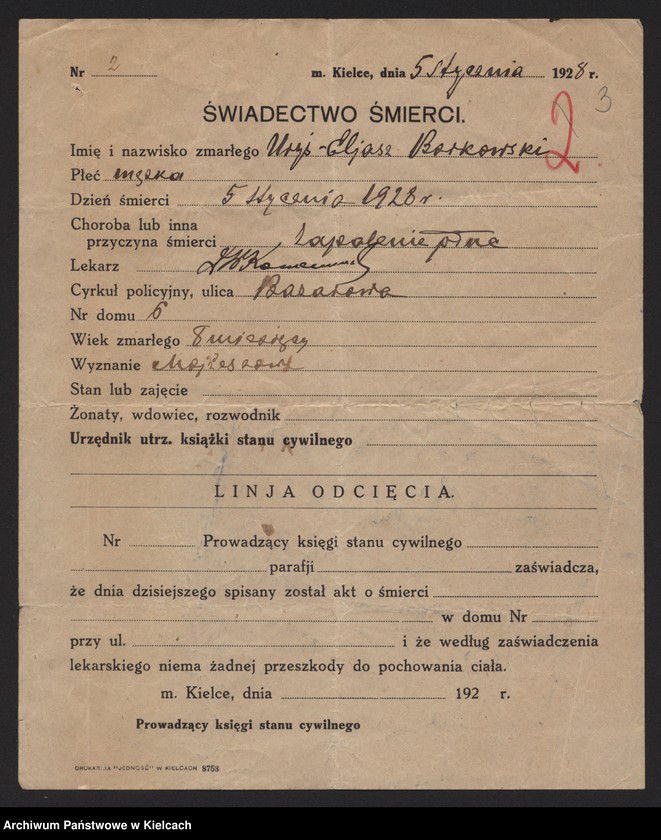 Nr 2 m. Kielce, dnia 5 Stycznia 1928 r.
3
ŚWIADECTWO ŚMIERCI.
2
Imię i nazwisko zmarłego Uryś-Eljasz Borkowski
Płeć męska
Dzień śmierci 5 Stycznia 1928 r.
Choroba lub inna
przyczyna śmierci Zapalenie płuc
Lekarz
Cyrkuł policyjny, ulica Bazarowa
Nr domu 6
Wiek zmarłego 8 miesięcy
Wyznanie Mojżeszowe
Stan lub zajęcie
Żonaty, wdowiec, rozwodnik
Urzędnik utrz. książki stanu cywilnego
LINJA ODCIĘCIA.
Nr Prowadzący księgi stanu cywilnego
parafji zaświadcza,
że dnia dzisiejszego spisany został akt o śmierci
w domu Nr
przy ul. i że według zaświadczenia
lekarskiego niema żadnej przeszkody do pochowania ciała.
m. Kielce, dnia 192 r.
Prowadzący księgi stanu cywilnego
DRUKARNIA "JEDNOŚĆ" W KIELCACH 8753
Archiwum Państwowe w Kielcach